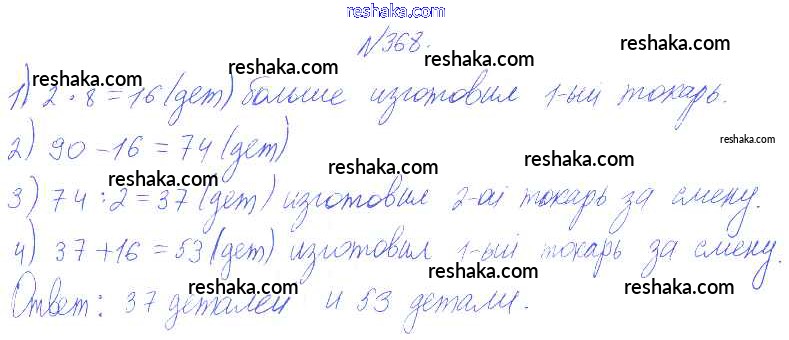 reshaka.ru
№368.
1) 2 · 8 = 16 (дет) больше изготовил 1-ый токарь.
2) 90 - 16 = 74 (дет)
3) 74 : 2 = 37 (дет) изготовил 2-ой токарь за смену.
4) 37 + 16 = 53 (дет) изготовил 1-ый токарь за смену.
Ответ: 37 деталей и 53 детали.
reshaka.com
reshaka.com
reshaka.com
reshaka.com
reshaka.com
reshaka.com
reshaka.com
reshaka.com
reshaka.com
reshaka.com
reshaka.com
reshaka.com
reshaka.com